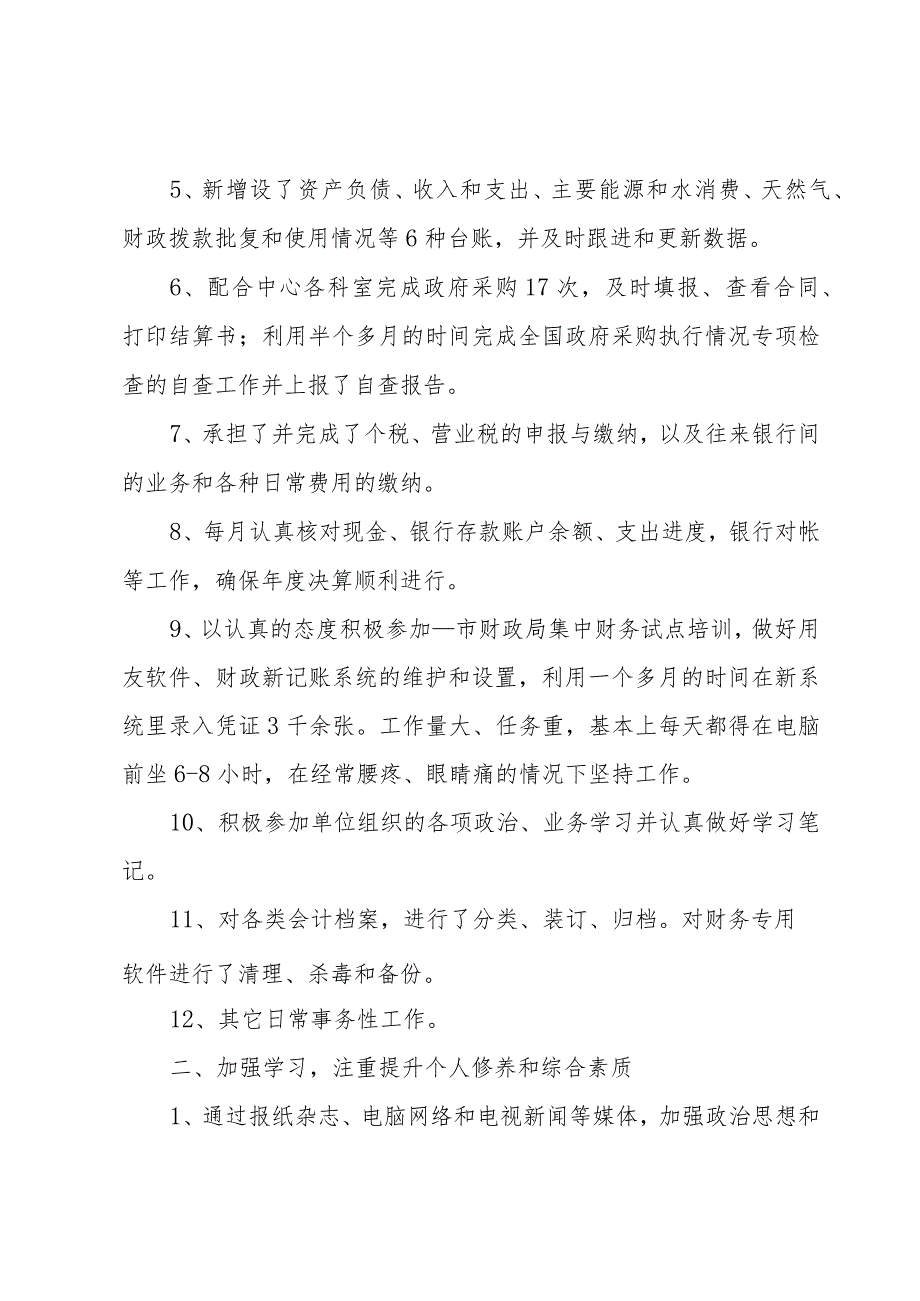 5、新增设了资产负债、收入和支出、主要能源和水消费、天然气、
财政拨款批复和使用情况等 6 种台账，并及时跟进和更新数据。
6、配合中心各科室完成政府采购 17 次，及时填报、查看合同、
打印结算书；利用半个多月的时间完成全国政府采购执行情况专项检
查的自查工作并上报了自查报告。
7、承担了并完成了个税、营业税的申报与缴纳，以及往来银行间
的业务和各种日常费用的缴纳。
8、每月认真核对现金、银行存款账户余额、支出进度，银行对帐
等工作，确保年度决算顺利进行。
9、以认真的态度积极参加—市财政局集中财务试点培训，做好用
友软件、财政新记账系统的维护和设置，利用一个多月的时间在新系
统里录入凭证 3 千余张。工作量大、任务重，基本上每天都得在电脑
前坐 6-8 小时，在经常腰疼、眼睛痛的情况下坚持工作。
10、积极参加单位组织的各项政治、业务学习并认真做好学习笔
记。
11、对各类会计档案，进行了分类、装订、归档。对财务专用
软件进行了清理、杀毒和备份。
12、其它日常事务性工作。
二、加强学习，注重提升个人修养和综合素质
1、通过报纸杂志、电脑网络和电视新闻等媒体，加强政治思想和